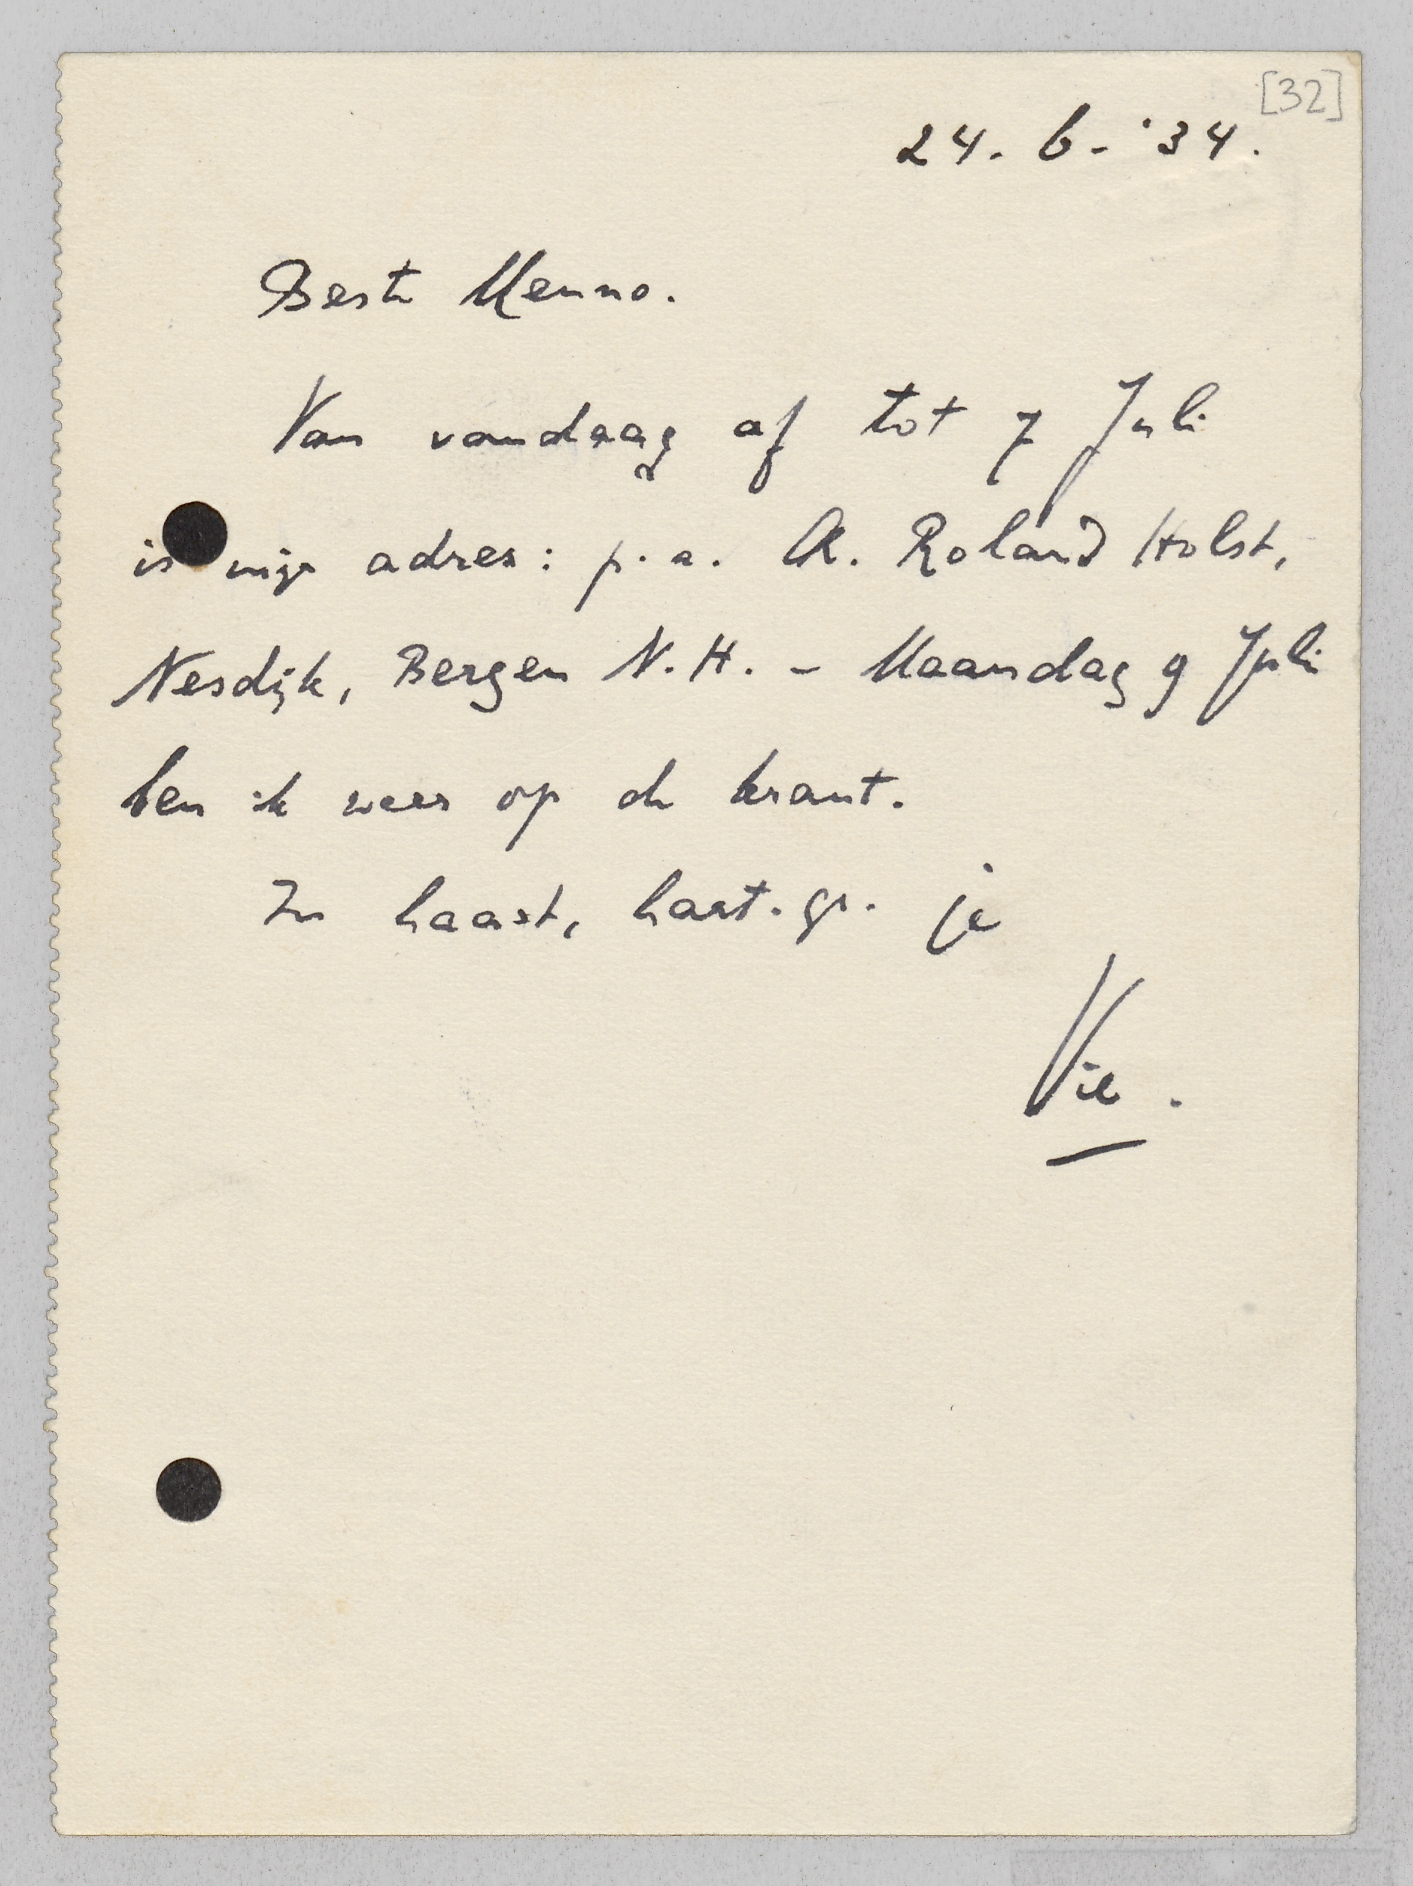 [32]
24. 6- '34.
Beste Menno.
Van vandaag af tot 7 Juli
is mijn adres: p.a. A. Roland Holst,
Nesdijk, Bergen N.H. – Maandag 9 Juli
ben ik weer op de krant.
In haast, hart. gr. je
Vic.